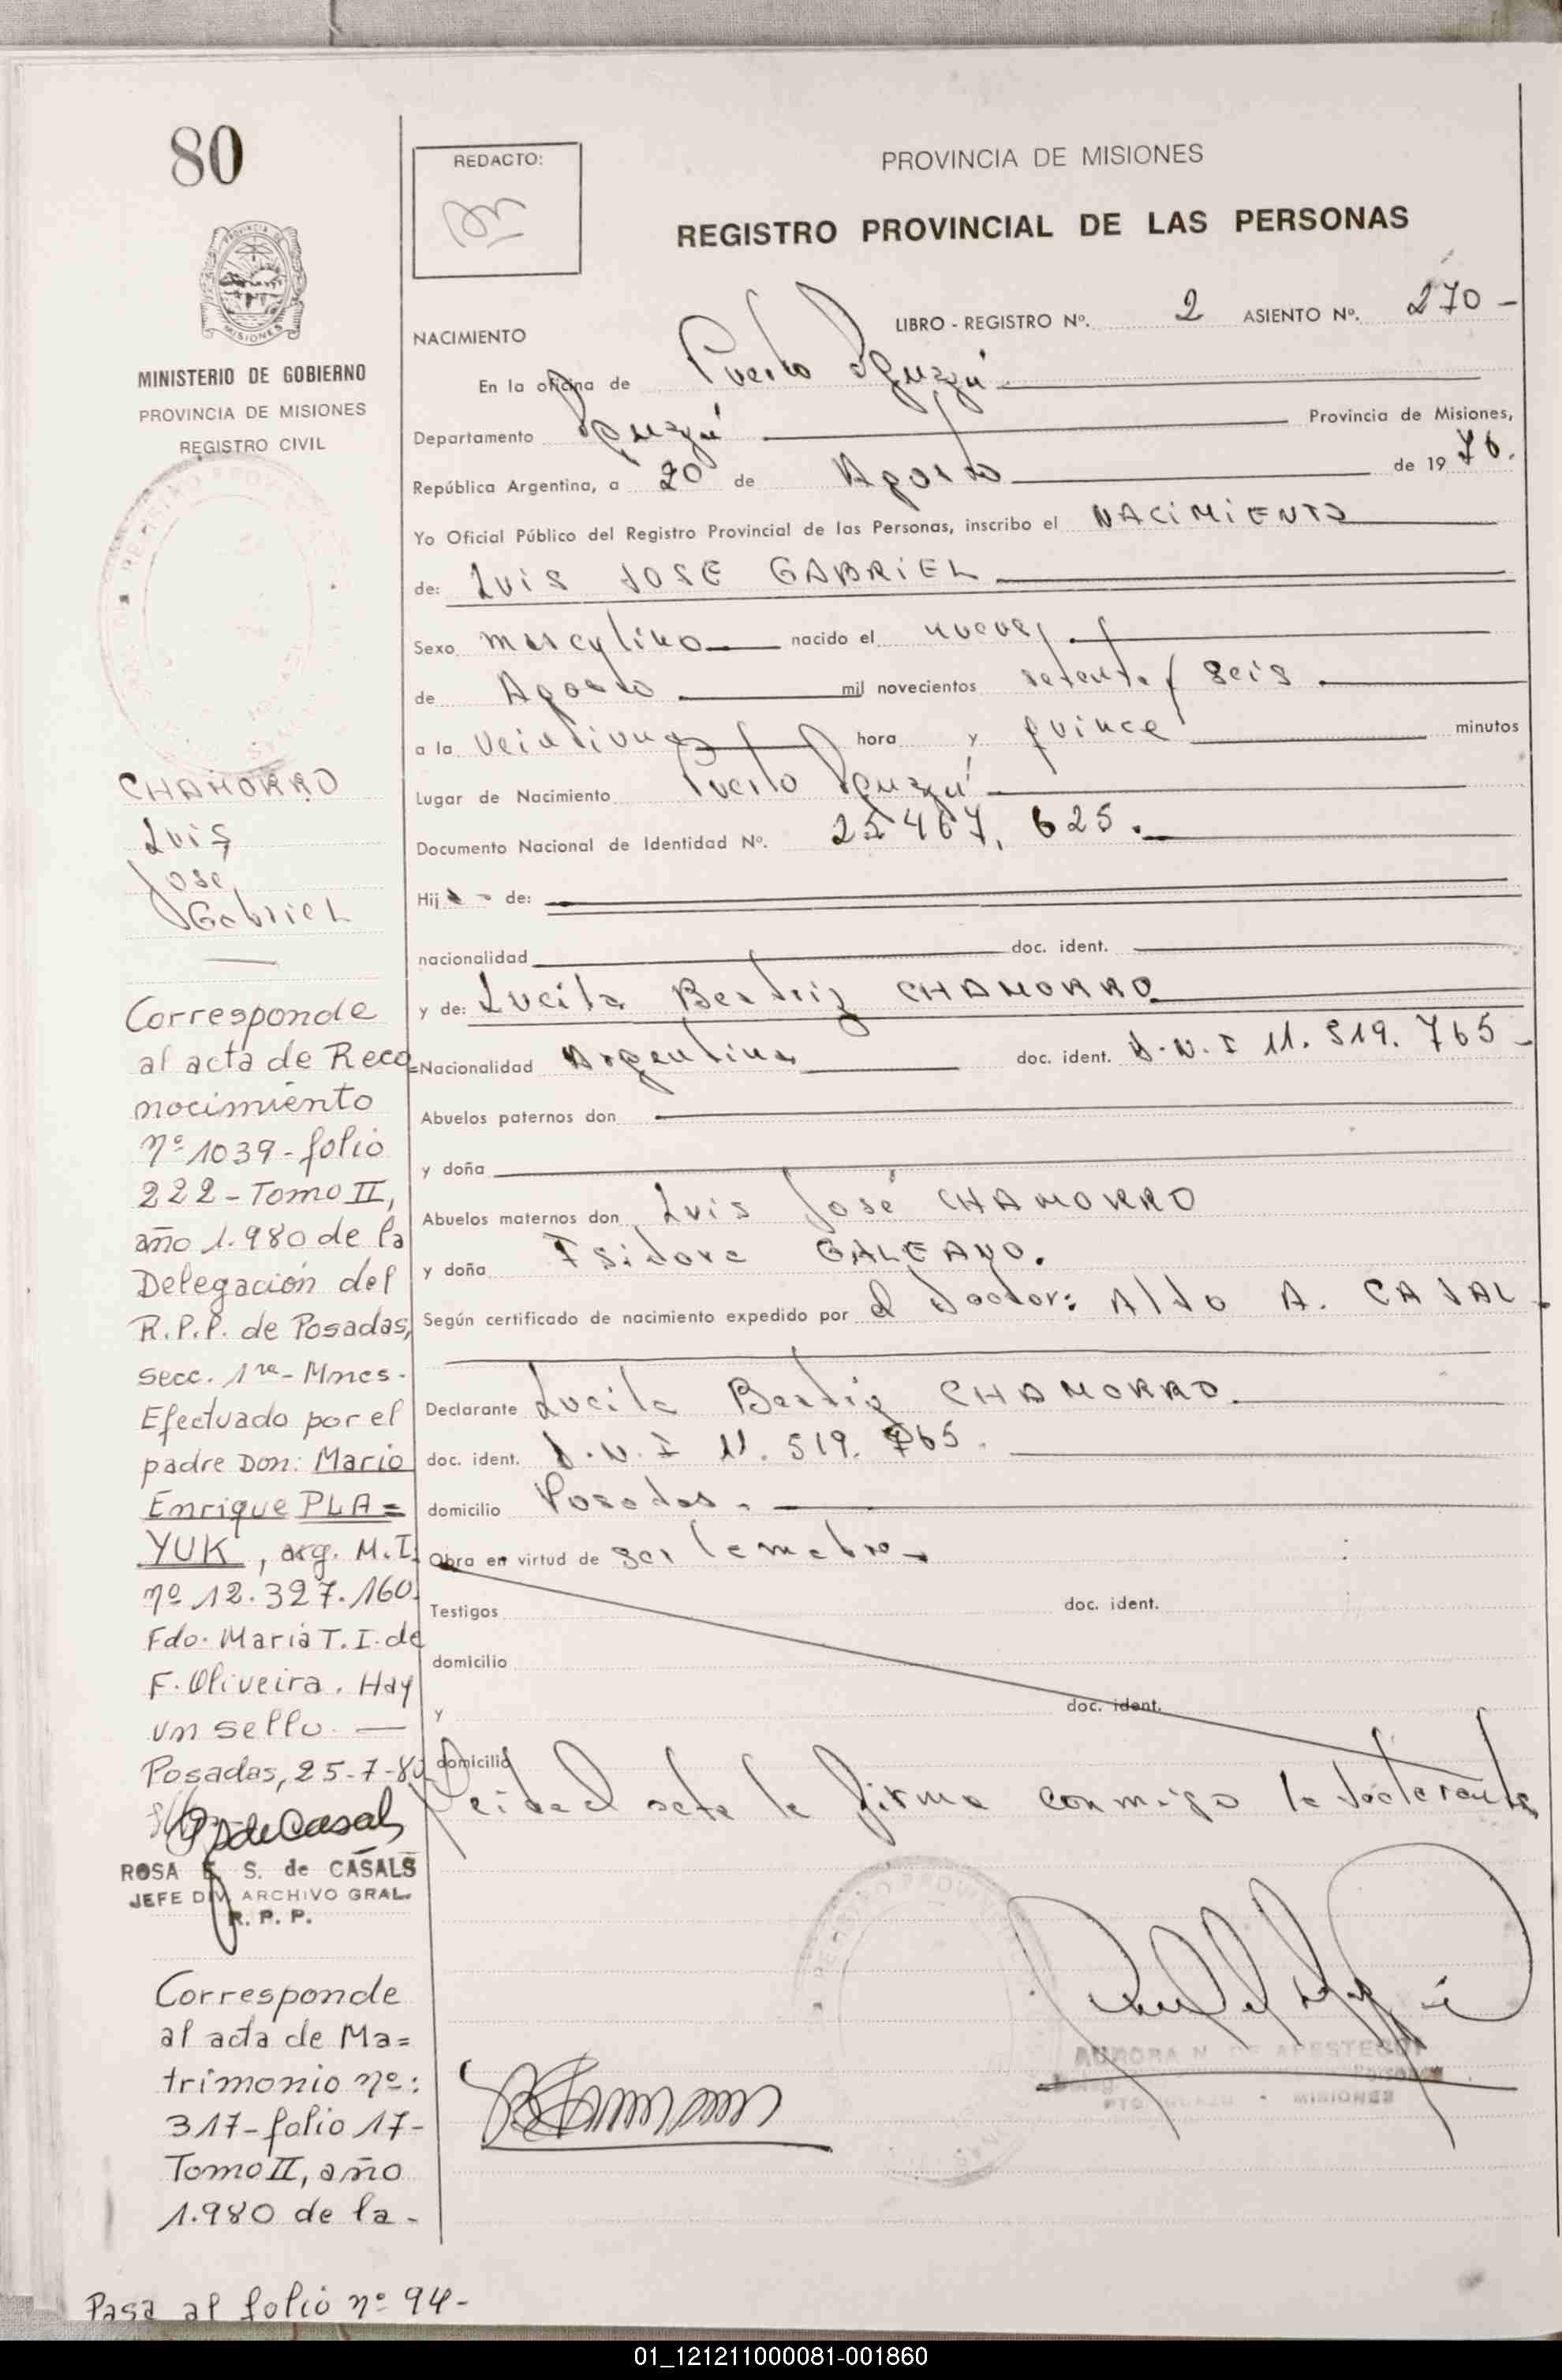 80
REDACTO:
PROVINCIA DE MISIONES
REGISTRO PROVINCIAL DE LAS PERSONAS
PROVINCIA DE MISIONES
MINISTERIO DE GOBIERNO
PROVINCIA DE MISIONES
REGISTRO CIVIL
NACIMIENTO
LIBRO - REGISTRO Nº. 2 ASIENTO Nº. 270 -
En la oficina de Puerto Iguazú
Departamento Iguazú Provincia de Misiones,
República Argentina, a 20 de Agosto de 19 76.
Yo Oficial Público del Registro Provincial de las Personas, inscribo el NACIMIENTO
de: LUIS JOSE GABRIEL
Sexo masculino nacido el nueve
de Agosto mil novecientos setenta y seis
a la veintiuna hora y quince minutos
Lugar de Nacimiento Puerto Iguazú
Documento Nacional de Identidad Nº. 25467.625.
Hij de:
nacionalidad doc. ident.
y de: Lucila Beatriz CHAMORRO
Nacionalidad Argentina doc. ident. D.N.I 11.519.765 -
Abuelos paternos don
y doña
Abuelos maternos don Luis José CHAMORRO
y doña Isidora GALEANO.
Según certificado de nacimiento expedido por el Doctor: Aldo A.
Declarante Lucila Beatriz CHAMORRO
doc. ident. D.N.I 11.519.765.
domicilio Posadas.
Obra en virtud de ser la madre
Testigos doc. ident.
domicilio
y doc. ident.
domicilio
Leida el acta la firma conmigo la declarante
CHAMORRO
Luis
Jose
Gabriel
Corresponde
al acta de Reco=
nocimiento
nº 1039 - folio
222 - Tomo II,
año 1.980 de la
Delegación del
R.P.P. de Posadas,
secc. 1ra - Mnes.
Efectuado por el
padre Don: Mario
Enrique PLA=
YUK, arg. M.I.
nº 12.327.160.
Fdo. María T. I. de
F. Oliveira. Hay
un sello. —
Posadas, 25-7-80
ROSA E. S. de CASALS
JEFE DIV. ARCHIVO GRAL.
R. P. P.
Corresponde
al acta de Ma=
trimonio nº:
317 - folio 17 -
Tomo II, año
1.980 de la -
AURORA N. DE
MISIONES
Pasa al folio nº 94 -
01_121211000081-001860